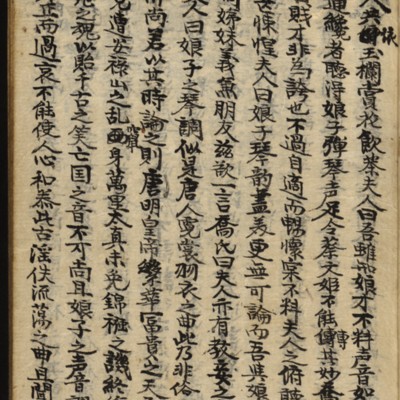 人共倚玉欄賞花飲茶夫人曰吾雖知娘才不料声音如
連纔者聽淂娘子彈琴声足令蔡文姬不能傳其妙
賤才非為誇也不過自適而暢懷不料夫人之俯聽
女悚惶夫人曰娘子琴韵盡美更無可論而吾與娘
姉妹義篤朋友玆敢一言喬氏曰夫人有教妾之
人曰娘子之琴調似是唐人霓裳羽衣之曲此乃非俗
所尚若以其時論之則唐明皇帝繁華富貴之天
遭安祿山之乱西身萬里太真未免錦襪之譏終
嵬之魂以貽千古之笑亡国之音不可尚且娘子之声音調
正而過哀不能使人心和泰此古淫佚流蕩之曲且聞